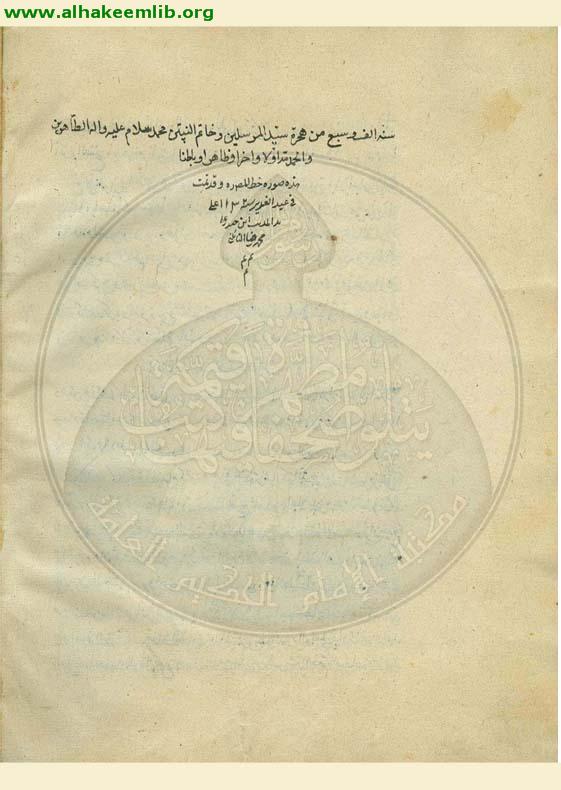 www.alhakeemlib.org
سنه الف و سبع من هجرة سيد المرسلين و خاتم النبيين محمد سلام عليه واله الطاهرين
والحمد لله اولا واخرا وظاهرا وباطنا
هذه صورة خط المصنف وقد تمت
فى عيد الغدير
محمد رضا
م م
م
يتلو صحفا مطهرة فيها كتب قيمة
مكتبة الإمام الحكيم العامة